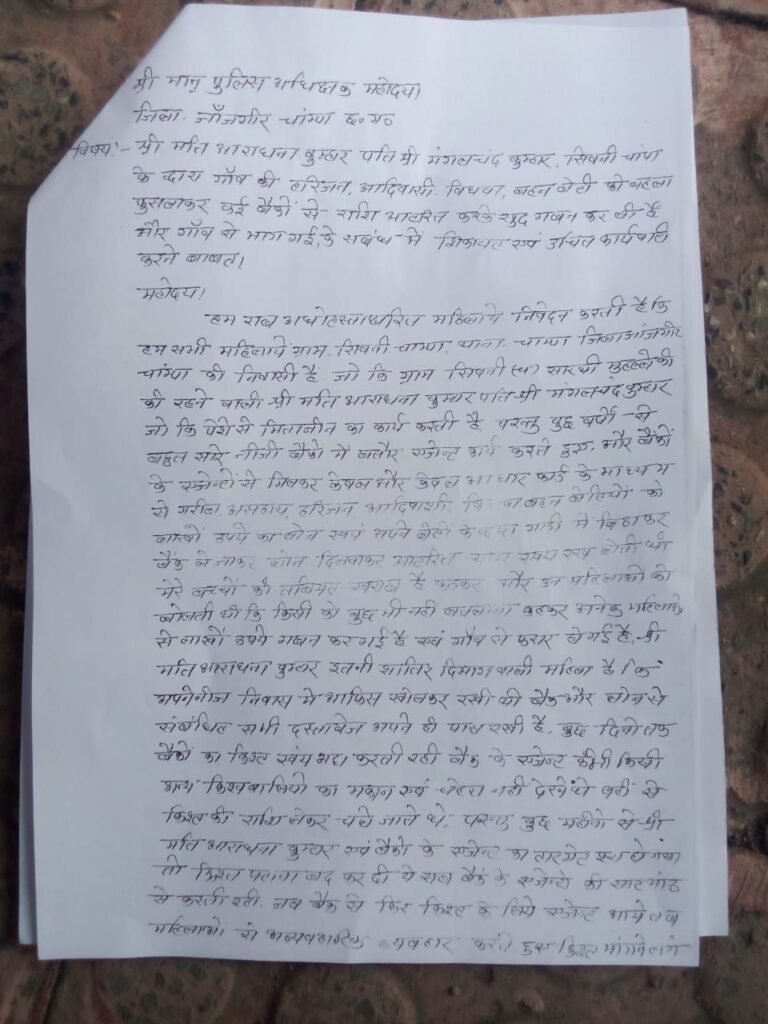 श्री मान् पुलिस अधिक्षक महोदय।
जिला. जाँजगीर चांम्पा छ०ग०
विषय:- श्री मति आराधना कुम्हार पति श्री मंगलचंद कुम्हार. सिवनी चांपा
के द्वारा गाँव की हरिजन, आदिवासी. विधवा, बहन बेटी को बहला
फुसलाकर कई बैंकों से राशि आहरित करके खुद गबन कर ली है
और गाँव से भाग गई, के सबंध में शिकायत एवं उचित कार्यवाही
करने बाबत।
महोदय।
हम सब अधोहस्ताक्षरित महिलाये निवेदन करती है कि
हम सभी महिलाये ग्राम. सिवनी चाम्पा, थाना. चाम्पा जिला जांजगीर
चांम्पा की निवासी है. जो कि ग्राम सिवनी (च) सारथी मुहल्ले की
की रहने वाली श्री मति आराधना कुम्हार पति श्री मंगलचंद कुम्हार
जो कि पेशे से मितानीन का कार्य करती है परन्तु कुछ वर्षो से
बहुत सारे नीजी बैंको में बतौर एजेन्ट कार्य करते हुए, और बैंकों
के एजेन्टो से मिलकर केवल और केवल आधार कार्ड के माध्यम
से गरीब, असहाय, हरिजन आदिवाशी, बहन बेटियों को
लाखों रुपये का लोन स्वयं अपने बेटो के गाडी में बिठाकर
बैंक ले जाकर लोन दिलवाकर आहरित स्वयं रख लेती थी
मेरे बच्चों की तबियत खराब है कहकर और उन महिलाओं को
बोलती थी कि किसी को कुछ भी नही बतलाना कहकर अनेक महिलाओ
से लाखों रुपये गबन कर गई है एवं गाँव से फरार हो गई है. श्री
मति आराधना कुम्हार इतनी शातिर दिमाग वाली महिला है। कि
अपने नीज निवास में आफिस खोलकर रखी थी बैंक और लोन से
संबंधित सभी दस्तावेज अपने ही पास रखी है. कुछ दिनो तक
बैंको का किश्त स्वंय अदा करती रही बैंक के एजेन्ट कभी किसी
अन्य किश्तवालियो का मकान एवं चेहरा नही देखे थे वही से
किश्त की राशि लेकर चले जाते थे. परन्तु कुछ महीनो से श्री
मति आराधना कुम्हार एवं बैंको के एजेन्ट का टारगेट पुरा हो गया
तो किश्त पटाना बंद कर दी ये सब बैंक के एजेन्टो की साठगांठ
से करती रही. जब बैंक से फिर किश्त के लिये एजेन्ट आये तब
महिलाओ से अव्यवहारिक व्यवहार करते हुए किश्त मांगने लगे